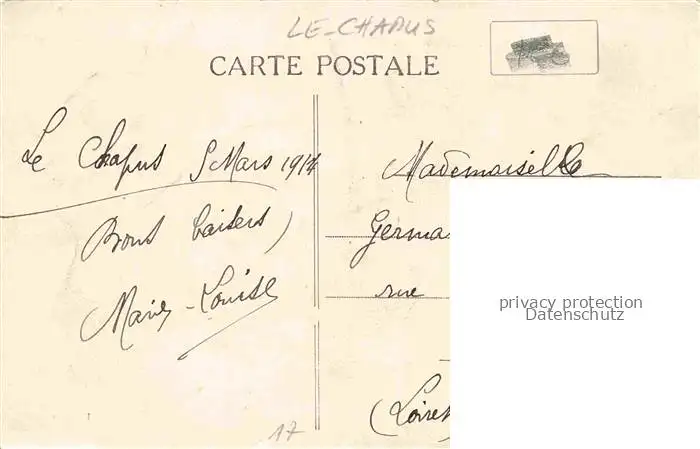 LE-CHAPUS
CARTE POSTALE
Le Chapus 5 Mars 1914
Bons baisers
Marie-Louise
17
Mademoiselle
Germa
rue
(Loiret
privacy protection
Datenschutz